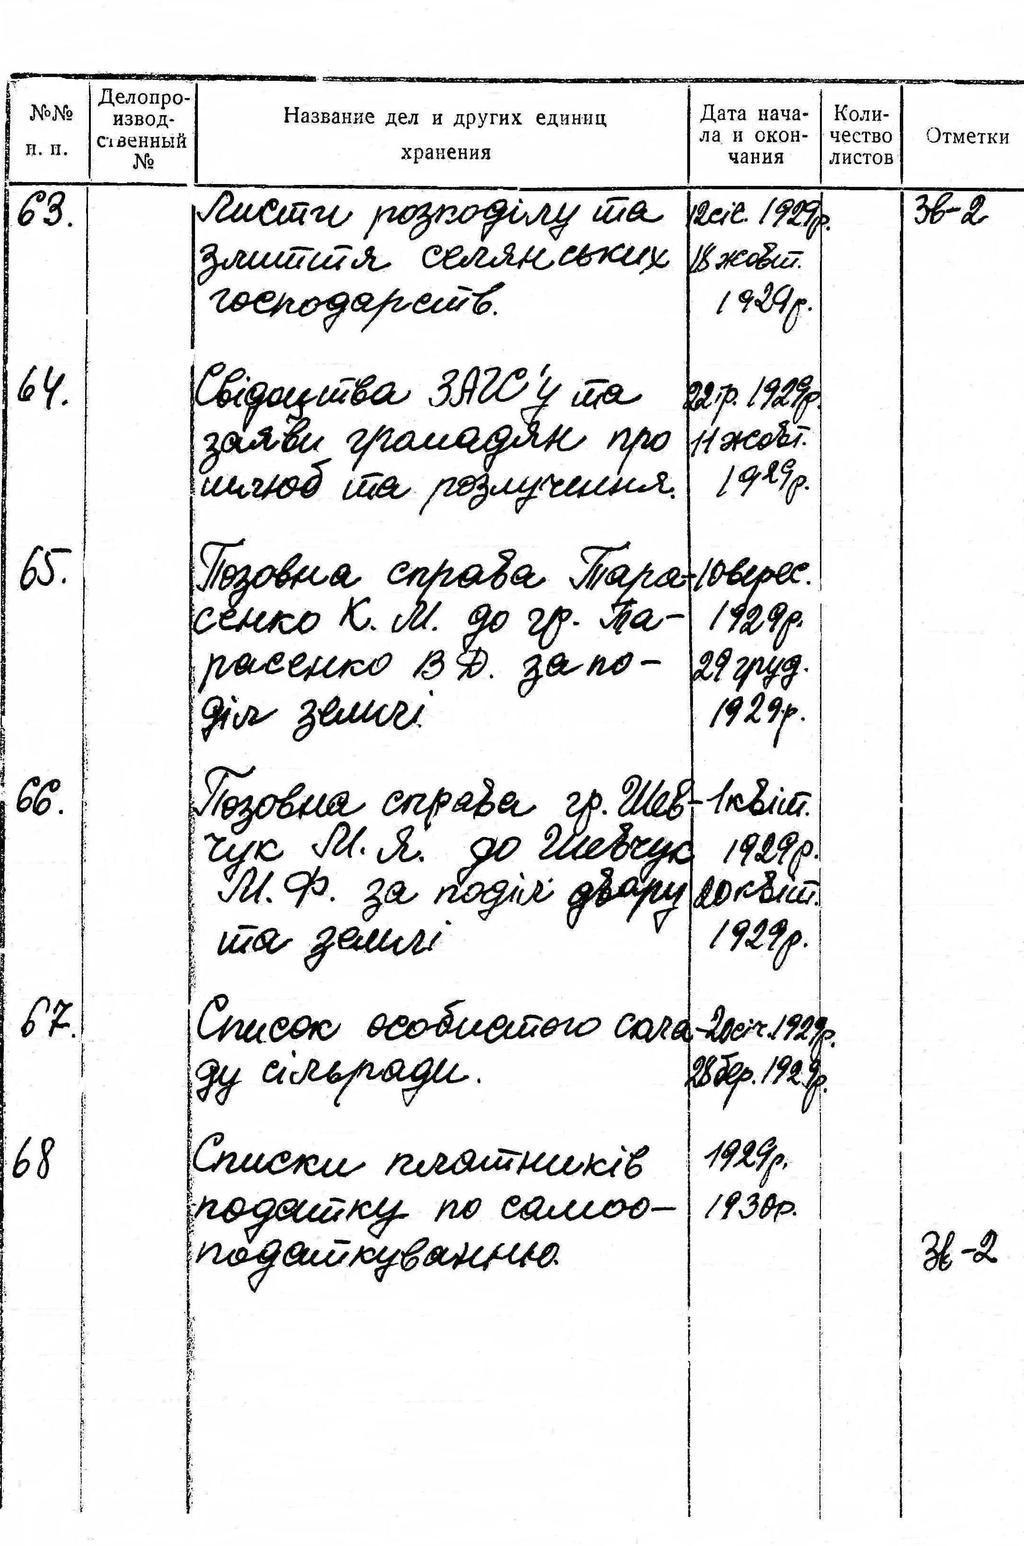 №№ п. п.
Делопро-
извод-
ственный
№
Название дел и других единиц
хранения
Дата нача-
ла и окон-
чания
Коли-
чество
листов
Отметки
63.
Листи розподілу та
злиття селянських
господарств.
12 січ. 1929р.
18 жовт.
1929р.
Зв-2
64.
Свідоцтва ЗАГС'у та
заяви громадян про
шлюб та розлучення.
22 гр. 1929р.
11 жовт.
1929р.
65.
Позовна справа Тара-
сенко К. М. до гр. Та-
расенко В Д. за по-
діл землі
10 верес.
1929р.
29 груд.
1929р.
66.
Позовна справа гр. Шев-
чук М. Я. до Шевчук
М. Ф. за поділ двару
та землі
1 квіт.
1929р.
20 квіт.
1929р.
67.
Список особистого скла-
ду сільради.
2 січ. 1929р.
28 бер. 1929р.
68
Списки платників
податку по самоо-
податкуванню.
1929р.
1930р.
Зв-2